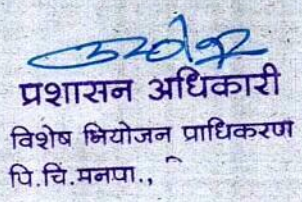 प्रशासन अधिकारी
विशेष नियोजन प्राधिकरण
पि.चिं.मनपा.,